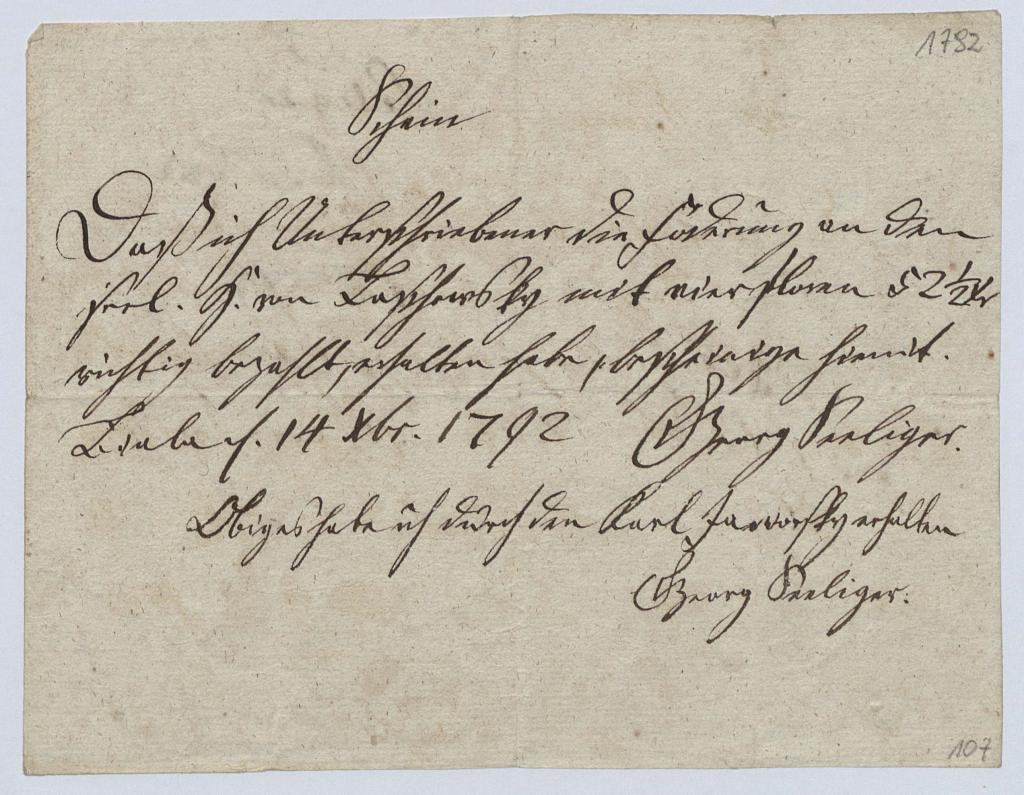 1792
Schein
Daß ich Unterschriebener die Foderung an den
seel. H. von Laschowsky mit vier floren 52 1/2 Xr
richtig bezahlt, erhalten habe, bescheinige hiemit.
Biala d. 14 Xbr. 1792 Georg Seeliger.
Obiges habe ich durch den Karl Jaworsky erhalten
Georg Seeliger.
107